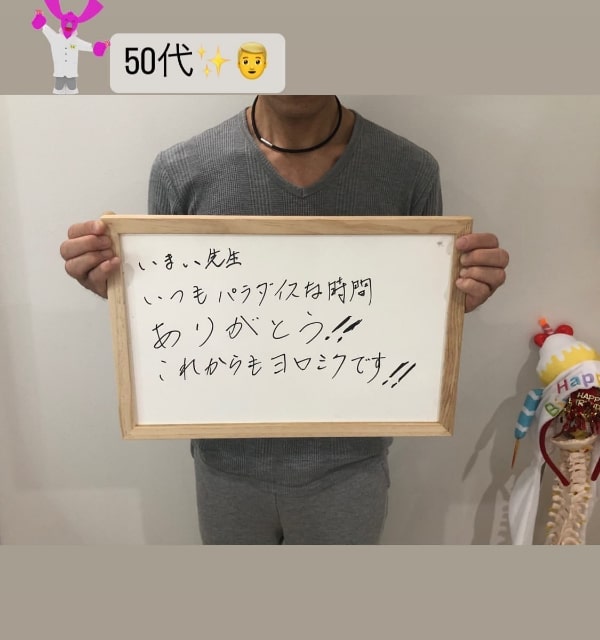 50代✨👨
いまい先生
いつもパラダイスな時間
ありがとう!!
これからもヨロミクです!!
Happy
HAPPY